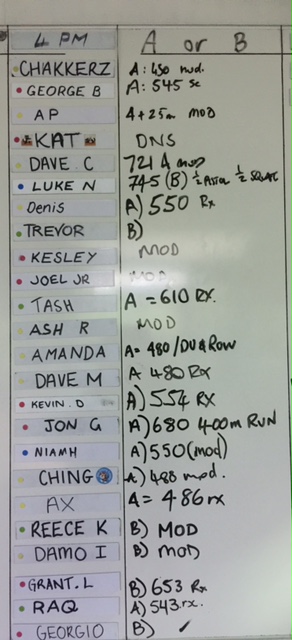 4 PM A or B
CHAKKERZ A: 450 mod.
GEORGE B A: 545 sc
AP 4+25m MOD
KAT DNS
DAVE C 721 A mod
LUKE N 745 (B) 1/2 Assau 1/2 SQUAT
Denis A) 550 Rx
TREVOR B)
KESLEY MOD
JOEL JR MOD
TASH A = 610 RX.
ASH R MOD
AMANDA A= 480/DU & ROW
DAVE M A 480 Rx
KEVIN. D A) 554 RX
JON G A) 680 400m RUN
NIAMH A) 550 (mod)
CHING A) 488 mod.
AX A = 486 rx
REECE K B) MOD
DAMO I B) MOD
GRANT. L B) 653 Rx
RAQ A) 543 rx.
GEORGIO B)